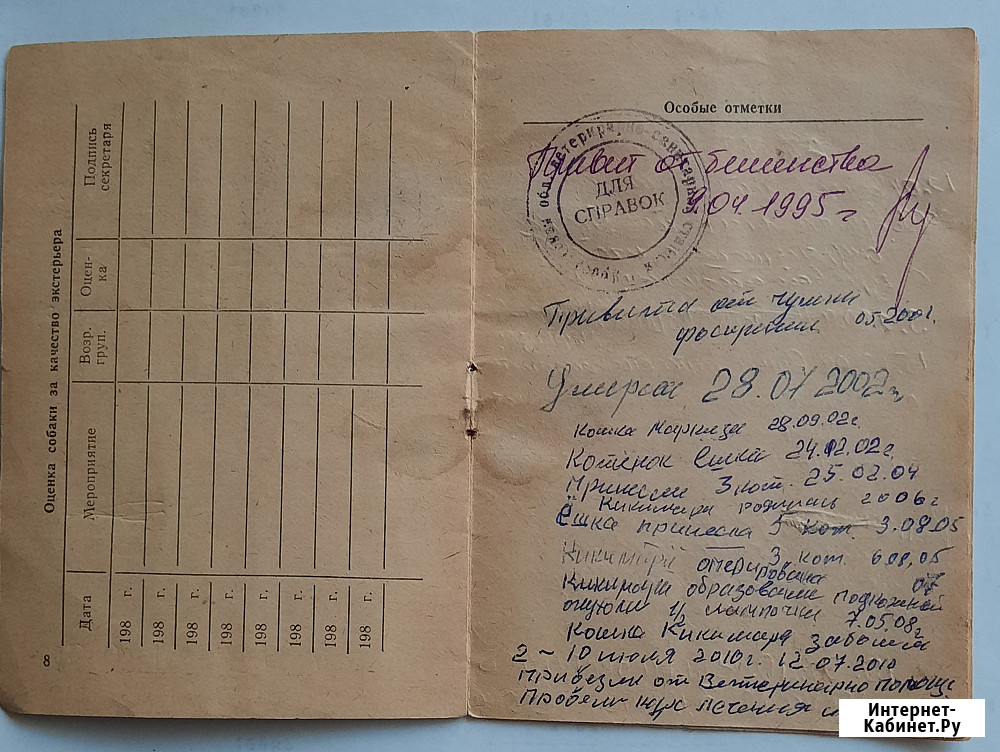 Оценка собаки за качество экстерьера
Дата
Мероприятие
Возр. групп.
Оцен-
ка
Подпись
секретаря
198 г.
198 г.
198 г.
198 г.
198 г.
198 г.
198 г.
198 г.
8
Особые отметки
ветеринарно-санитарная
обл.
ДЛЯ
СПРАВОК
Привит от бешенства
04.1995 г
Привита от чумы
05.2001.
Умерла 28.07 2002 г
Кошка Маркиза 28.09.02г.
Котёнок 24.02.02г
3 кот. 25.02.04
Кикимара родилась 2006 г
Ёшка принесла 5 кот. 3.08.05
3 кот. 6 08.05
оперирована
образование подкожной
опухоли 1/2 лампочки 7.05 08г
Кошка Кикимара заболела
2 - 10 июля 2010г. 12.07.2010
Привезли от Ветеринарно помощи
курс лечения
Интернет-
Кабинет.Ру